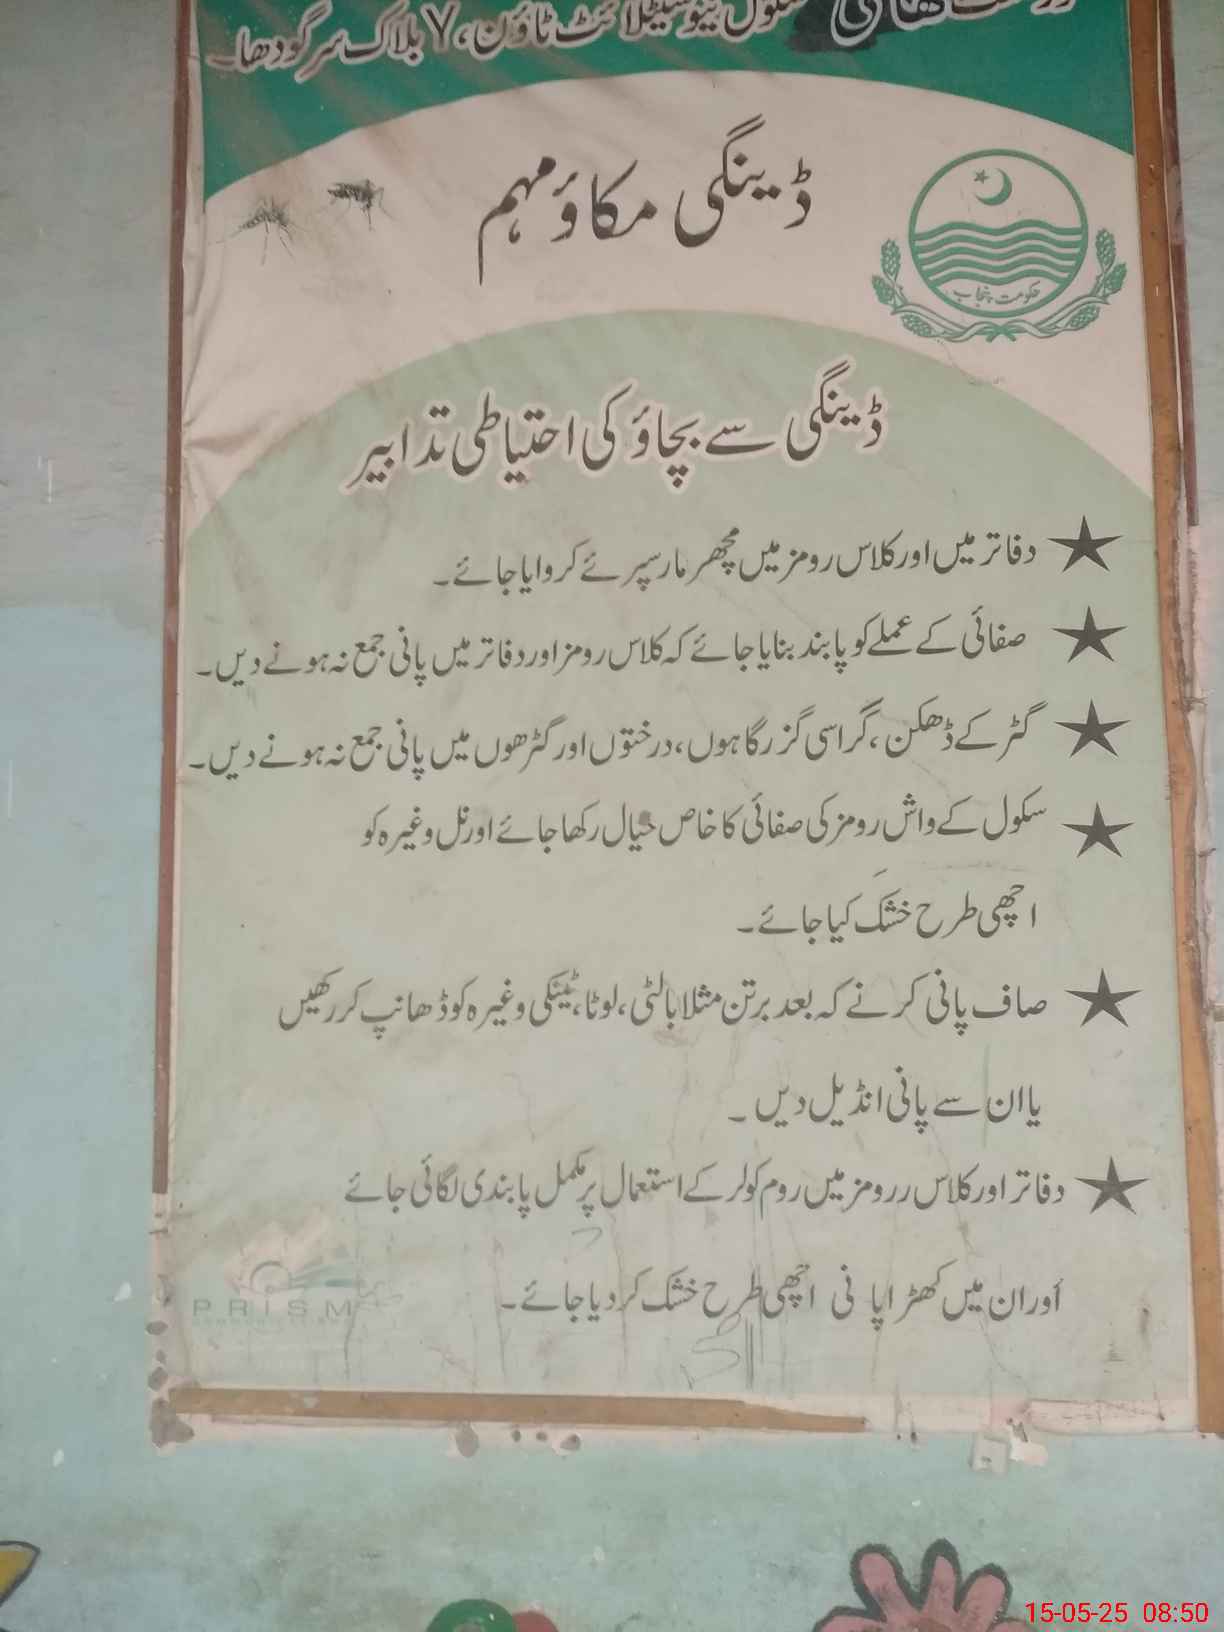 سکول نیو سیٹلائٹ ٹاؤن، ۷ بلاک سرگودھا۔
ڈینگی مکاؤ مہم
حکومت پنجاب
ڈینگی سے بچاؤ کی احتیاطی تدابیر
دفاتر میں اور کلاس رومز میں مچھر مار سپرئے کروایا جائے۔
صفائی کے عملے کو پابند بنایا جائے کہ کلاس رومز اور دفاتر میں پانی جمع نہ ہونے دیں۔
گٹر کے ڈھکن، گراسی گزرگاہوں، درختوں اور گٹرھوں میں پانی جمع نہ ہونے دیں۔
سکول کے واش رومز کی صفائی کا خاص خیال رکھا جائے اور نل وغیرہ کو
اچھی طرح خشک کیا جائے۔
صاف پانی کرنے کہ بعد برتن مثلا بالٹی، لوٹا، ٹینکی وغیرہ کو ڈھانپ کر رکھیں
یا ان سے پانی انڈیل دیں۔
دفاتر اور کلاس ررومز میں روم کولر کے استعمال پر مکمل پابندی لگائی جائے
اور ان میں کھڑا پانی اچھی طرح خشک کر دیا جائے۔
PRISM
15-05-25 08:50